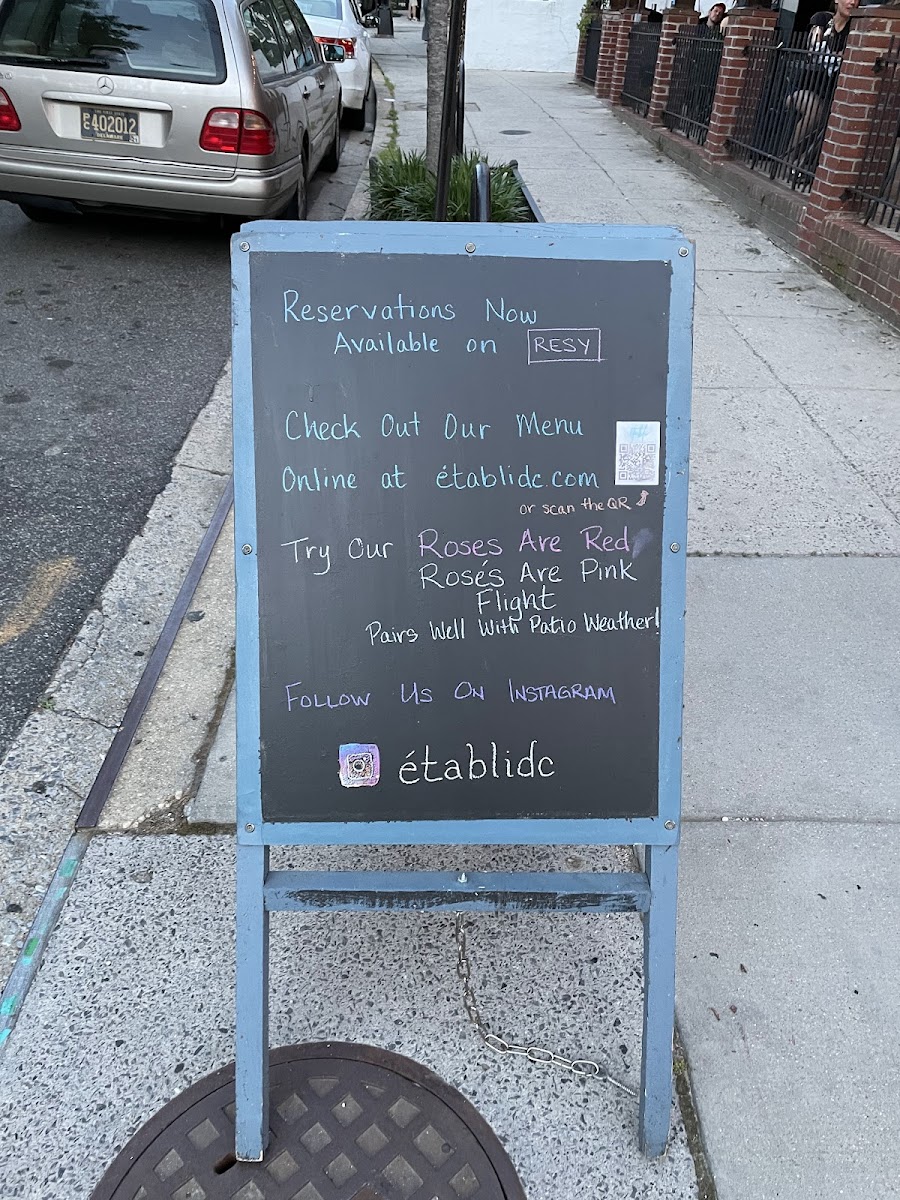 PC 402012
Reservations Now
Available on RESY
Check Out Our Menu
Online at établidc.com
or scan the QR
Try Our Roses Are Red,
Rosés Are Pink
Flight
Pairs Well With Patio Weather!
FOLLOW US ON INSTAGRAM
établidc